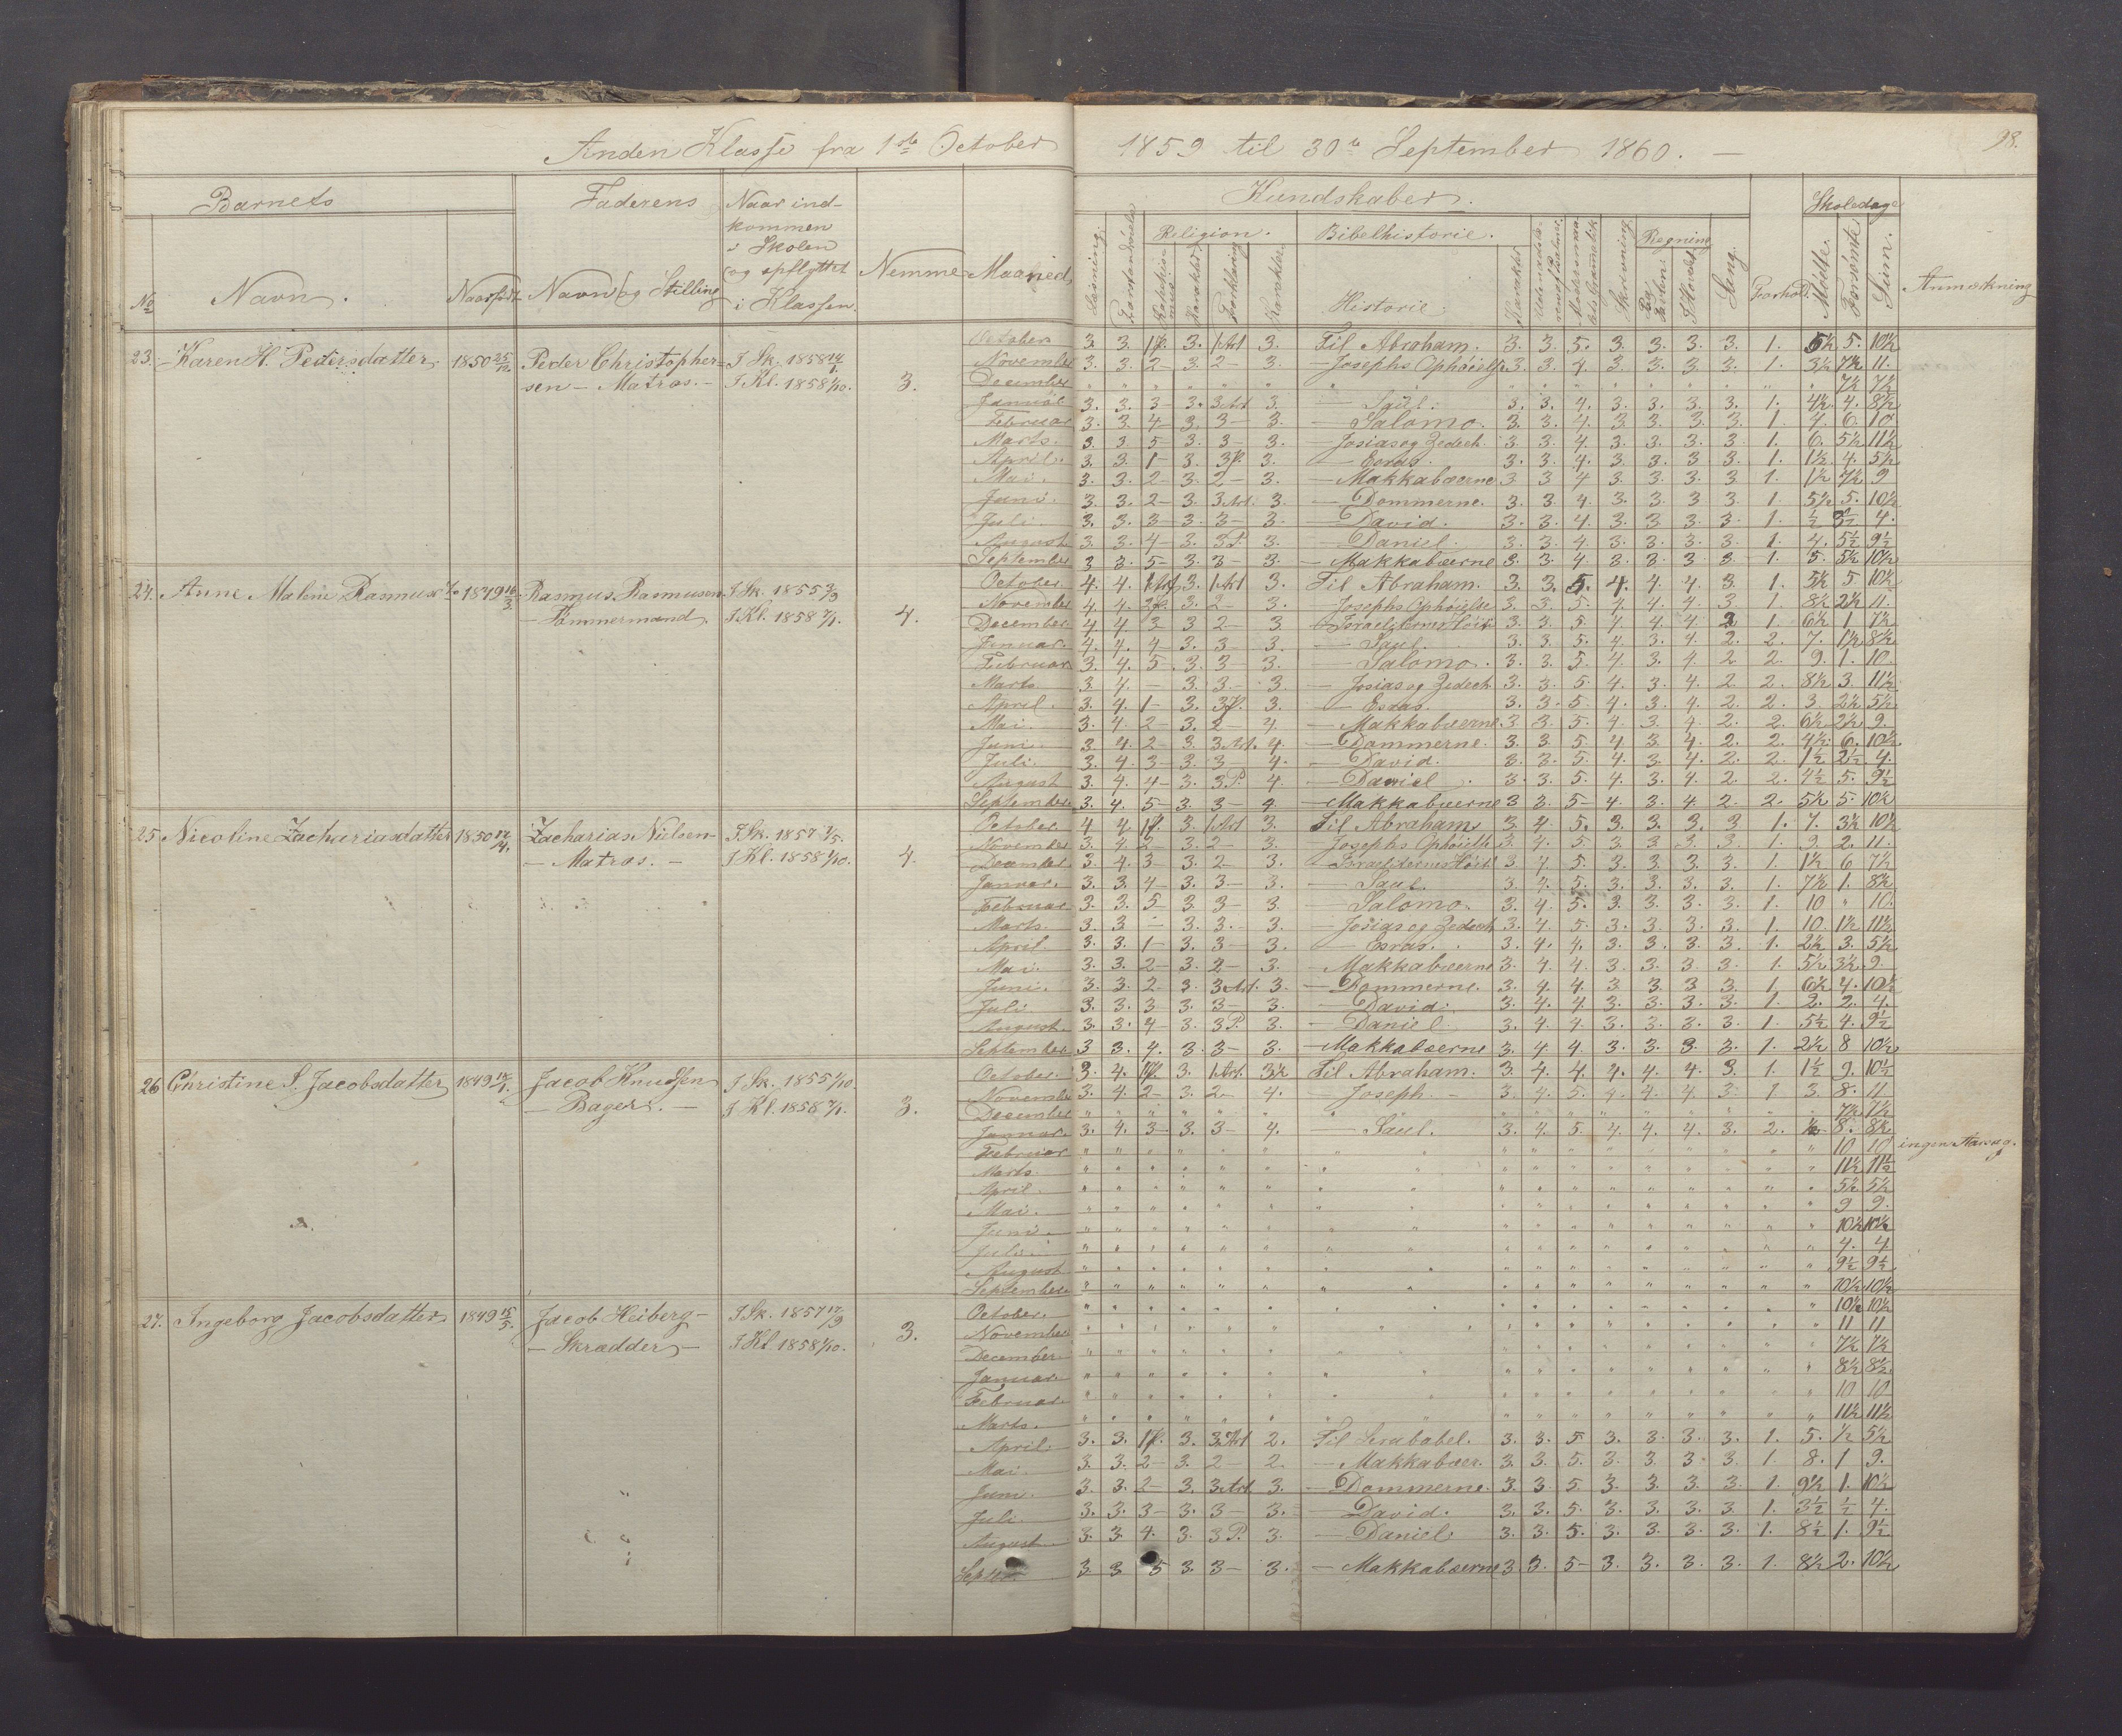 Anden Klasse fra 1ste October 1859 til 30te September 1860. —
98.
Barnets Faderens Naar ind-
kommen
i Skolen
og opflyttet
i Klassen. Nemme Maaned Kundskaber. Forhold. Skoledage Anmærkning
No Navn. Naar født Navn og Stilling
Læsning. Religion. Bibelhistorie. Skrivning. Regning Sang. Mødte. Forsømte Sum.
Karakter Forklaring Karakter Historie. Karakter
23. Karen H. Pedersdatter 1850 25/12 Peder Christopher-
sen – Matros. – I Sk. 1858 14/1
I Kl. 1858 1/10. 3.
October 3. 3. 1 P. 3. 1 Art 3. Til Abraham. 3. 3. 5. 3. 3. 3. 3. 1. 5½ 5. 10½
November 3. 3. 2 – 3. 2 – 3. – Josephs Ophöielse 3. 3. 4. 3. 3. 3. 3. 1. 3½ 7½ 11.
December " " " " " " " " " " " " " " " " 7½ 7½
Januar 3. 3. 3 – 3. 3 Art 3. – Saul. 3. 3. 4. 3. 3. 3. 3. 1. 4½ 4. 8½
Februar 3. 3. 4 – 3. 3 – 3. – Salomo. 3. 3. 4. 3. 3. 3. 3. 1. 4. 6. 10.
Marts. 3. 3. 5 – 3. 3 – 3. – Josias og Zedech. 3. 3. 4. 3. 3. 3. 3. 1. 6. 5½ 11½
April. 3. 3. 1 – 3. 3 P. 3. – Esras. 3. 3. 4. 3. 3. 3. 3. 1. 1½ 4. 5½
Mai. 3. 3. 2 – 3. 2 – 3. – Makkabæerne 3 3 4 3. 3. 3. 3 1. 1½ 7½ 9
Juni. 3. 3. 2 – 3. 3 Art. 3. – Dommerne. 3. 3. 4. 3. 3. 3. 3. 1. 5½ 5. 10½
Juli. 3. 3. 3 – 3. 3 – 3. – David. 3. 3. 4. 3. 3. 3. 3. 1. ½ 3½ 4.
August 3. 3. 4 – 3. 3 P. 3. – Daniel. 3. 3. 4. 3. 3. 3. 3. 1. 4. 5½ 9½
September 3 3. 5 – 3. 3 – 3. – Makkabæerne 3. 3. 4 3. 3. 3 3 – 1. 5. 5½ 10½
24. Anne Malene Rasmus 1849 16/3. Rasmus Rasmusen
– Tömmermand. I Sk. 1855 3/9
I Kl. 1858 7/1. 4.
October. 4. 4. 1 Art 3. 1 Art 3. Til Abraham. 3. 3. 5. 4. 4. 4. 3. 1. 5½ 5 10½
November 4. 4. 2 P. 3. 2 – 3. – Josephs Ophöielse 3. 3. 5. 4. 4. 4. 3. 1. 8½ 2½ 11.
December. 4 4 3 3 2 – 3 3. 3. 5 4. 4. 4 2 1 6½ 1 7½
Januar. 4. 4. 4 – 3. 3 – 3. – Saul. 3. 3. 5. 4. 3. 4. 2. 2. 7. 1½ 8½
Februar 3. 4. 5. 3. 3 – 3. – Salomo. 3. 3. 5. 4. 3. 4. 2 2. 9. 1. 10.
Marts. 3. 4. – 3. 3. – 3. – Josias og Zedech. 3. 3. 5. 4. 3. 4. 2 2. 8½ 3. 11½
April. 3. 4. 1 – 3. 3 P. 3. – Esras. 3. 3. 5. 4. 3. 4. 2. 2. 3. 2½ 5½
Mai. 3. 4. 2 – 3. 2 – 4. – Makkabæerne. 3 3. 5. 4. 3. 4. 2. 2. 6½ 2½ 9.
Juni. 3. 4. 2 – 3. 3 Art. 4. – Dommerne. 3. 3. 5. 4. 3. 4. 2. 2. 4½ 6. 10½
Juli. 3. 4. 3 – 3. 3 – 4. – David. 3. 3. 5. 4. 3. 4. 2. 2. 1½ 2½ 4.
August 3. 4. 4 – 3. 3 P. 4. – Daniel. 3. 3. 5. 4. 3. 4. 2. 2. 4½ 5. 9½
September 3. 4. 5 – 3. 3 – 4. – Makkabæerne 3 3. 5 – 4. 3. 4. 2. 2. 5½ 5. 10½
25 Nicoline Zachariasdatter 1850 Zacharias Nielsen
– Matros. – I Sk. 1857 7/5.
I Kl. 1858 1/10. 4.
October. 4 4. 1 P. 3. 1 Art 3. Til Abraham. 3. 4. 5. 3. 3. 3. 3 1. 7. 3½ 10½
November 3. 4. 2 – 3. 2 – 3. – Josephs Ophöielse 3. 4. 5. 3. 3 3. 3. 1. 9. 2. 11.
December. 3. 4. 3 3. 2 – 3. 3. 4 5. 3. 3. 3. 3. 1. 1½ 6 7½
Januar. 3. 3. 4 – 3. 3 – 3. – Saul. 3. 4. 5. 3. 3. 3. 3. 1. 7½ 1. 8½
Februar 3. 3. 5 – 3. 3 – 3. – Salomo. 3. 4. 5. 3. 3. 3. 3. 1. 10 " 10.
Marts. 3. 3 – 3. 3. – 3. – Josias og Zedech 3. 4. 5. 3. 3. 3. 3. 1. 10. 1½ 11½
April. 3. 3. 1 – 3. 3 – 3. – Esras. 3. 4. 4. 3. 3. 3. 3. 1. 2½ 3. 5½
Mai. 3. 3. 2 – 3. 2 – 3. – Makkabæerne 3. 4. 4. 3. 3. 3. 3. 1. 5½ 3½ 9.
Juni. 3. 3. 2 – 3. 3 Art. 3. – Dommerne. 3. 4. 4. 3 3. 3. 3. 1. 6½ 4. 10½
Juli 3. 3. 3 3. 3 – 3. – David. 3. 4. 4. 3. 3. 3. 3. 1. 2. 2. 4.
August. 3. 3. 4 – 3. 3 P. 3. – Daniel. 3. 4. 4. 3. 3. 3. 3. 1. 5½ 4. 9½
September 3 3. 4. 3. 3 – 3. – Makkabæerne 3. 4 4. 3. 3. 3. 3. 1. 2½ 8 10½
26 Christine S. Jacobsdatter 1849 Jacob Knudsen
– Bager. – I Sk. 1855 1/10.
I Kl. 1858 7/1. 3.
October. 3. 4. 1 P. 3. 1 Art. 3½ Til Abraham. 3. 4. 4. 4. 4. 4. 3. 1. 1½ 9. 10½
November 3. 4. 2 – 3. 2 – 4. – Joseph. – 3. 4. 5. 4. 4. 4. 3. 1 3. 8. 11
December " " " " " " " " " " " " " " " " 7½ 7½
Januar. 3. 4. 3 – 3. 3 – 4. – Saul. 3. 4. 5. 4. 4. 4. 3. 2. ½ 8. 8½
Februar " " " " " " " " " " " " " " " " 10 10 ingen Aarsag.
Marts. " " " " " " " " " " " " " " " " 11½ 11½
April. " " " " " " " " " " " " " " " " 5½ 5½
Mai. " " " " " " " " " " " " " " " " 9 9.
Juni. " " " " " " " " " " " " " " " " 10½ 10½
Juli. " " " " " " " " " " " " " " " " 4. 4
August " " " " " " " " " " " " " " " " 9½ 9½
September " " " " " " " " " " " " " " " " 10½ 10½
27. Ingeborg Jacobsdatter 1849 15/5. Jacob Heiberg –
– Skrædder – I Sk. 1857 17/9
I Kl. 1858 1/10. 3.
October. " " " " " " " " " " " " " " " " 10½ 10½
November " " " " " " " " " " " " " " " " 11 11
December. " " " " " " " " " " " " " " " " 7½ 7½
Januar. " " " " " " " " " " " " " " " " 8½ 8½
Februar. " " " " " " " " " " " " " " " " 10 10
Marts. " " " " " " " " " " " " " " " " 11½ 11½
April. 3. 3. 1 P. 3. 3 Art 2. Til Serubabel. 3. 3. 5 3. 3. 3. 3. 1. 5. ½ 5½
Mai. 3. 3. 2 – 3. 2 – 2. – Makkabæer. 3. 3. 5. 3. 3. 3. 3. 1. 8. 1 9.
Juni. 3. 3. 2 – 3. 3 Art 3. – Dommerne. 3. 3. 5. 3. 3. 3. 3. 1. 9½ 1. 10½
Juli. 3. 3. 3 – 3. 3 – 3. – David. 3. 3. 5. 3. 3. 3. 3 1. 3½ ½ 4.
August 3. 3. 4. 3. 3 P. 3. – Daniel. 3. 3. 5. 3. 3. 3. 3. 1. 8½ 1. 9½
Septbr. 3. 3 5 3. 3 – 3. – Makkabæerne 3. 3. 5 – 3. 3. 3. 3. 1. 8½ 2. 10½